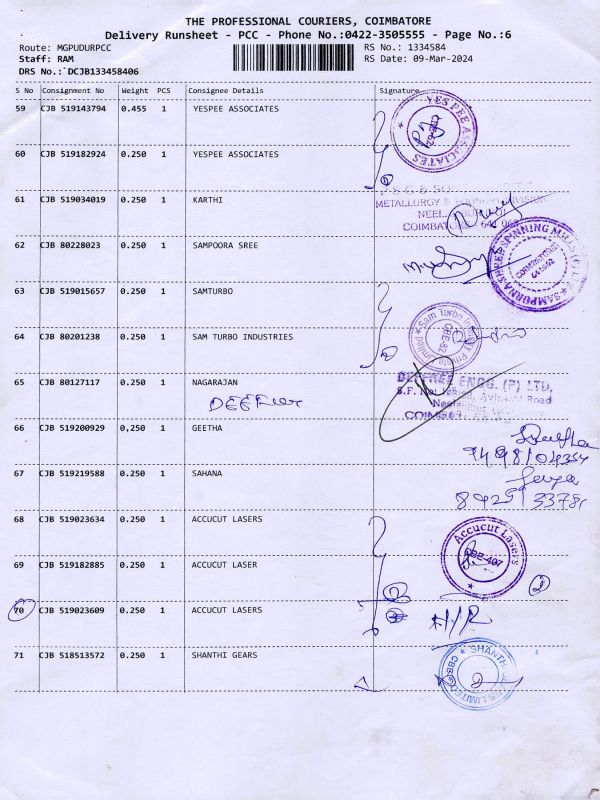 THE PROFESSIONAL COURIERS, COIMBATORE
Delivery Runsheet - PCC - Phone No.:0422-3505555 - Page No.:6
Route: MGPUDURPCC
RS No.: 1334584
Staff: RAM
RS Date: 09-Mar-2024
DRS No.: DCJB133458406
S No Consignment No Weight PCS Consignee Details Signature
59 CJB 519143794 0.455 1 YESPEE ASSOCIATES
YESPEE ASSOCIATES
CBE-62
60 CJB 519182924 0.250 1 YESPEE ASSOCIATES
61 CJB 519034019 0.250 1 KARTHI
METALLURGY & FOUNDRY DIVISION
62 CJB 80228023 0.250 1 SAMPOORA SREE
63 CJB 519015657 0.250 1 SAMTURBO
64 CJB 80201238 0.250 1 SAM TURBO INDUSTRIES
Sam Turbo Industry Private Limited
65 CJB 80127117 0.250 1 NAGARAJAN
ENGG. (P) LTD,
Avinashi Road
66 CJB 519200929 0.250 1 GEETHA
67 CJB 519219588 0.250 1 SAHANA
68 CJB 519023634 0.250 1 ACCUCUT LASERS
Accucut Lasers
CBE-407
69 CJB 519182885 0.250 1 ACCUCUT LASER
2
70 CJB 519023609 0.250 1 ACCUCUT LASERS
71 CJB 518513572 0.250 1 SHANTHI GEARS